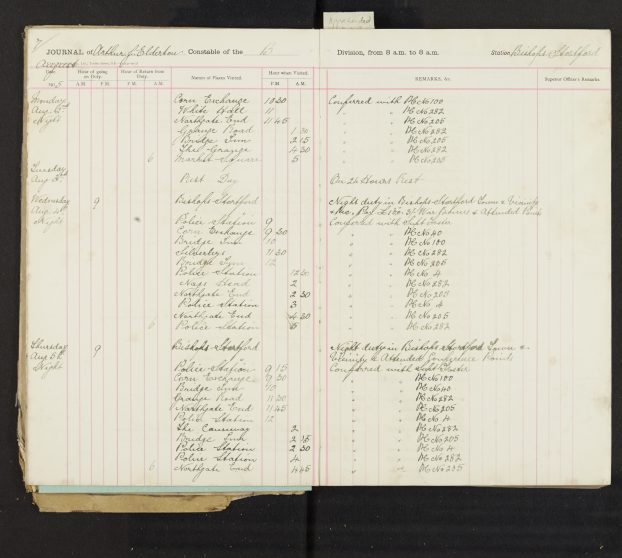 JOURNAL of Arthur J. Elderton Constable of the B Division, from 8 a.m. to 8 a.m. Station Bishops Stortford
August
Date. Hour of going on Duty. Hour of Return from Duty. Names of Places Visited. Hour when Visited. REMARKS, &c. Superior Officer's Remarks.
A.M. P.M. P.M. A.M. P.M. A.M.
Monday Corn Exchange 10 30 Conferred with PC No 100
Aug White Hill 11 " " PC No 282
Night Northgate End 11 45 " " PC No 205
Grange Road 1 30 " " PC No 282
Bridge Inn 2 15 " " PC No 205
The Grange 4 30 " " PC No 282
6 Market Square 5 " " PC No 205
Tuesday
Aug 3rd Rest Day On 24 Hours Rest
Wednesday 9 Bishops Stortford Night duty in Bishops Stortford Town & Vicinity
Aug 4th & Attended Conf
Night Police Station 9 Conferred with Supt
Corn Exchange 9 30 " " PC No 40
Bridge Inn 10 " " PC No 100
11 30 " " PC No 282
Bridge Inn 12 " " PC No 205
Police Station 12 30 " " PC No 4
Nags Head 2 " " PC No 282
Northgate End 2 30 " " PC No 205
Police Station 3 " " PC No 4
Northgate End 4 30 " " PC No 205
6 Police Station 5 " " PC No 282
Thursday 9 Bishops Stortford Night duty in Bishops Stortford Town &
Aug 5th Vicinity & Attended Conference Points
Night Police Station 9 15 Conferred with Supt
Corn Exchange 9 30 " " PC No 100
Bridge Inn 10 " " PC No 40
Grange Road 11 30 " " PC No 282
Northgate End 11 45 " " PC No 205
Police Station 12 " " PC No 4
The Causeway 2 " " PC No 282
Bridge Inn 2 15 " " PC No 205
Police Station 2 30 " " PC No 4
Police Station 4 " " PC No 282
6 Northgate End 4 45 " " PC No 205